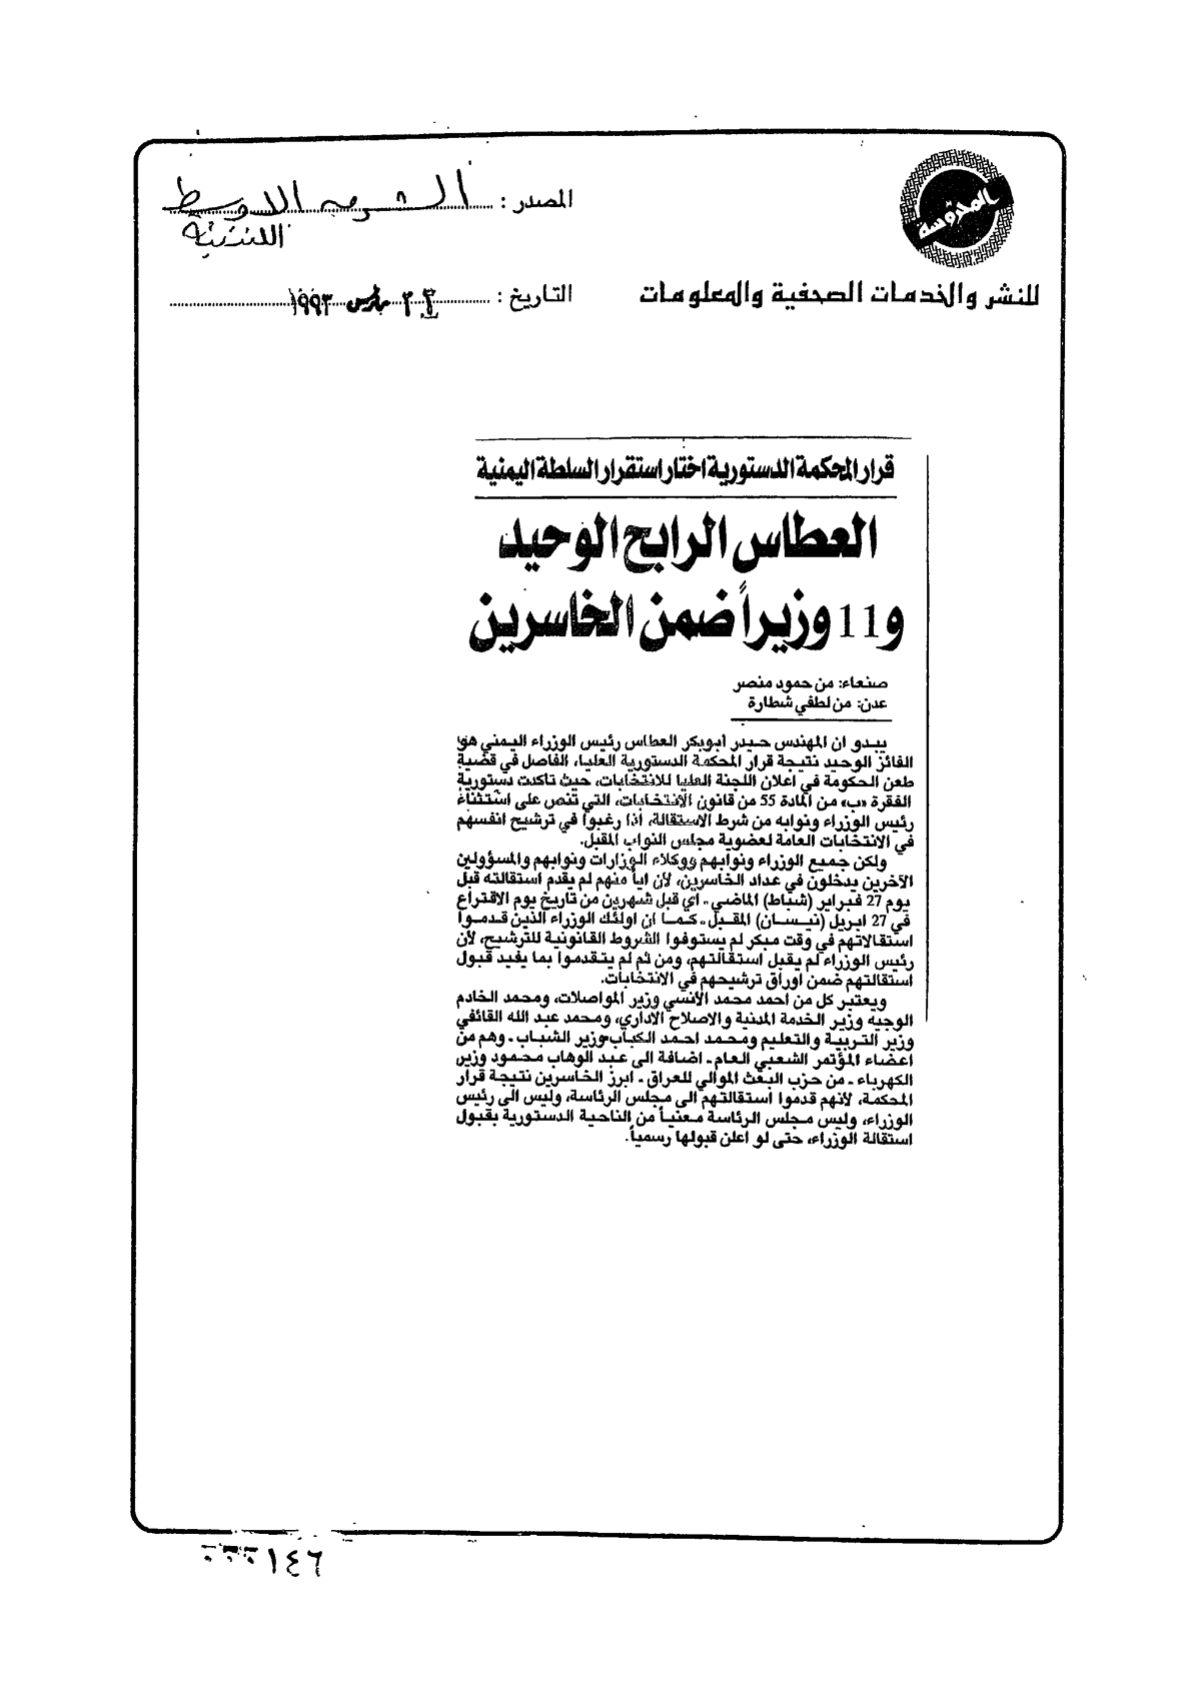 المحروسة
للنشر والخدمات الصحفية والمعلومات
المصدر : الشرق الاوسط
اللندنية
التاريخ : ٢٣ مارس ١٩٩٣
قرار المحكمة الدستورية اختار استقرار السلطة اليمنية
العطاس الرابح الوحيد
و11 وزيراً ضمن الخاسرين
صنعاء: من حمود منصر
عدن: من لطفي شطارة
يبدو ان المهندس حيدر أبوبكر العطاس رئيس الوزراء اليمني هو
الفائز الوحيد نتيجة قرار المحكمة الدستورية العليا، الفاصل في قضية
طعن الحكومة في اعلان اللجنة العليا للانتخابات، حيث تأكدت دستورية
الفقرة «ب» من المادة 55 من قانون الانتخابات، التي تنص على استثناء
رئيس الوزراء ونوابه من شرط الاستقالة، اذا رغبوا في ترشيح انفسهم
في الانتخابات العامة لعضوية مجلس النواب المقبل.
ولكن جميع الوزراء ونوابهم ووكلاء الوزارات ونوابهم والمسؤولين
الآخرين يدخلون في عداد الخاسرين، لأن اياً منهم لم يقدم استقالته قبل
يوم 27 فبراير (شباط) الماضي ـ أي قبل شهرين من تاريخ يوم الاقتراع
في 27 ابريل (نيسان) المقبل ـ كما ان اولئك الوزراء الذين قدموا
استقالاتهم في وقت مبكر لم يستوفوا الشروط القانونية للترشيح، لأن
رئيس الوزراء لم يقبل استقالتهم، ومن ثم لم يتقدموا بما يفيد قبول
استقالتهم ضمن اوراق ترشيحهم في الانتخابات.
ويعتبر كل من احمد محمد الأنسي وزير المواصلات، ومحمد الخادم
الوجيه وزير الخدمة المدنية والاصلاح الاداري، ومحمد عبد الله الفائفي
وزير التربية والتعليم ومحمد احمد الكباب وزير الشباب ـ وهم من
اعضاء المؤتمر الشعبي العام ـ اضافة الى عبد الوهاب محمود وزير
الكهرباء ـ من حزب البعث الموالي للعراق ـ ابرز الخاسرين نتيجة قرار
المحكمة، لأنهم قدموا استقالتهم الى مجلس الرئاسة، وليس الى رئيس
الوزراء، وليس مجلس الرئاسة معنياً من الناحية الدستورية بقبول
استقالة الوزراء، حتى لو اعلن قبولها رسمياً.
١٤٦